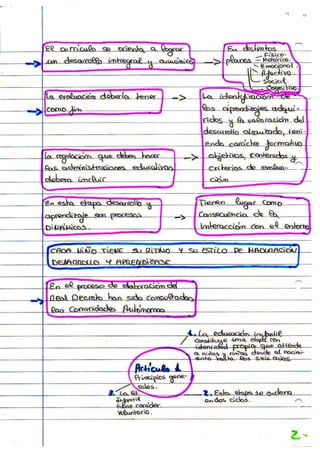 El currículo se orienta a lograr
un desarrollo integral y armónico
En distintos
planos
- Físico
- Motórico
- Emocional
- Afectivo
- Social
- Cognitivo
La evaluación debería tener
como fin
La identificación de
los aprendizajes adqui-
ridos y la valoración del
desarrollo alcanzado, teni-
endo carácter formativo
La regulación que deben hacer
las administraciones educativas
deberá incluir
objetivos, contenidos y
criterios de evalua-
ción
En esta etapa desarrollo y
aprendizaje son procesos
Dinámicos.
Tienen lugar como
consecuencia de la
interacción con el entorno
CADA NIÑO TIENE SU RITMO Y SU ESTILO DE MADURACIÓN
DESARROLLO Y APRENDIZAJE
En el proceso de elaboración del
Real Decreto han sido consultadas
las Comunidades Autónomas
Artículo 1
Principios gene-
rales.
1. La educación infantil
constituye una etapa con
identidad propia que atiende
a niños y niñas desde el naci-
miento hasta los seis años.
2. Esta etapa se ordena
en dos ciclos.
3. La Ed.
Infantil
tiene carácter
voluntario.
2-